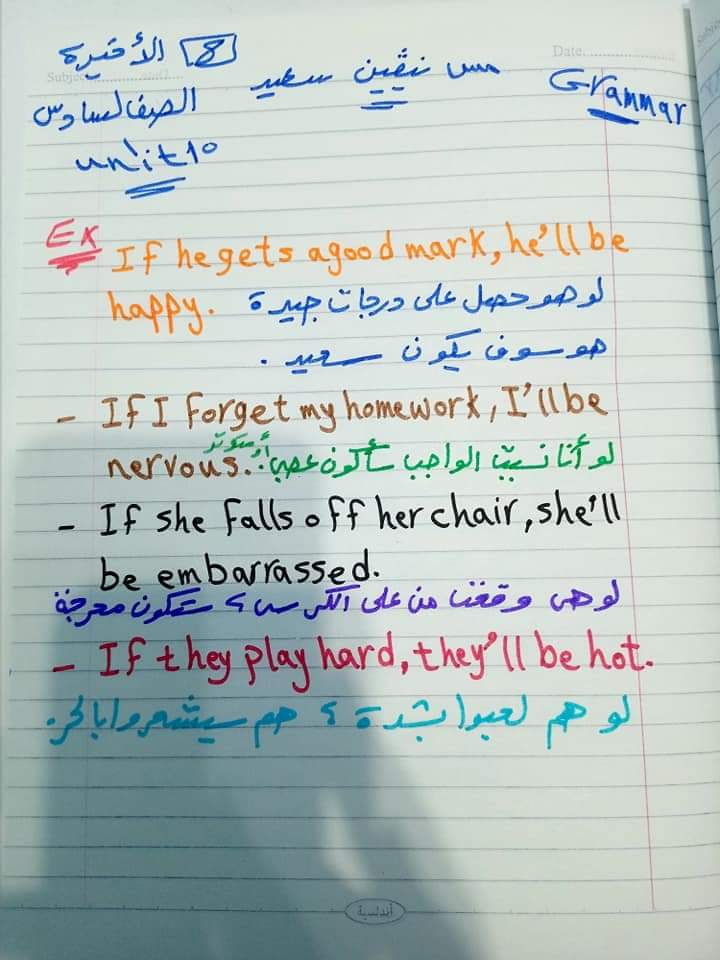 الأخيرة 8
Subject
Date:
مس نيڤين سعيد
Grammar
الصف السادس
unit 10
Ex If he gets a good mark, he'll be
happy. لو هو حصل على درجات جيدة
هو سوف يكون سعيد.
- If I forget my homework, I'll be
nervous. لو أنا نسيت الواجب سأكون عصبي
- If she falls off her chair, she'll
be embarrassed.
لو هي وقعت من على الكرسي، ستكون محرجة
- If they play hard, they'll be hot.
لو هم لعبوا بشدة، هم سيشعروا بالحر.
أندلسية